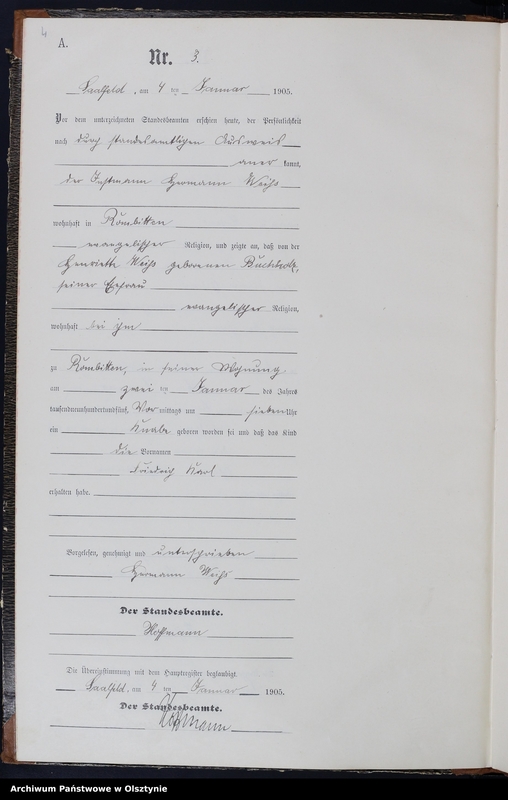 4
A.
Nr. 3.
Saalfeld, am 4 ten Januar 1905.
Vor dem unterzeichneten Standesbeamten erschien heute, der Persönlichkeit
nach durch standesamtlichen Ausweis
aner kannt,
der Instmann Hermann Weiß
wohnhaft in Römbitten
evangelischer Religion, und zeigte an, daß von der
Henriette Weiß geborenen Buchholz,
seiner Ehefrau
evangelischer Religion,
wohnhaft bei ihm
zu Römbitten, in seiner Wohnung
am zwei ten Januar des Jahres
tausendneunhundertundfünf, Vor mittags um sieben Uhr
ein Knabe geboren worden sei und daß das Kind
die Vornamen
Friedrich Karl
erhalten habe.
Vorgelesen, genehmigt und unterschrieben
Hermann Weiß
Der Standesbeamte.
Hoffmann
Die Übereinstimmung mit dem Hauptregister beglaubigt
Saalfeld, am 4 ten Januar 1905.
Der Standesbeamte.
Hoffmann
Archiwum Państwowe w Olsztynie